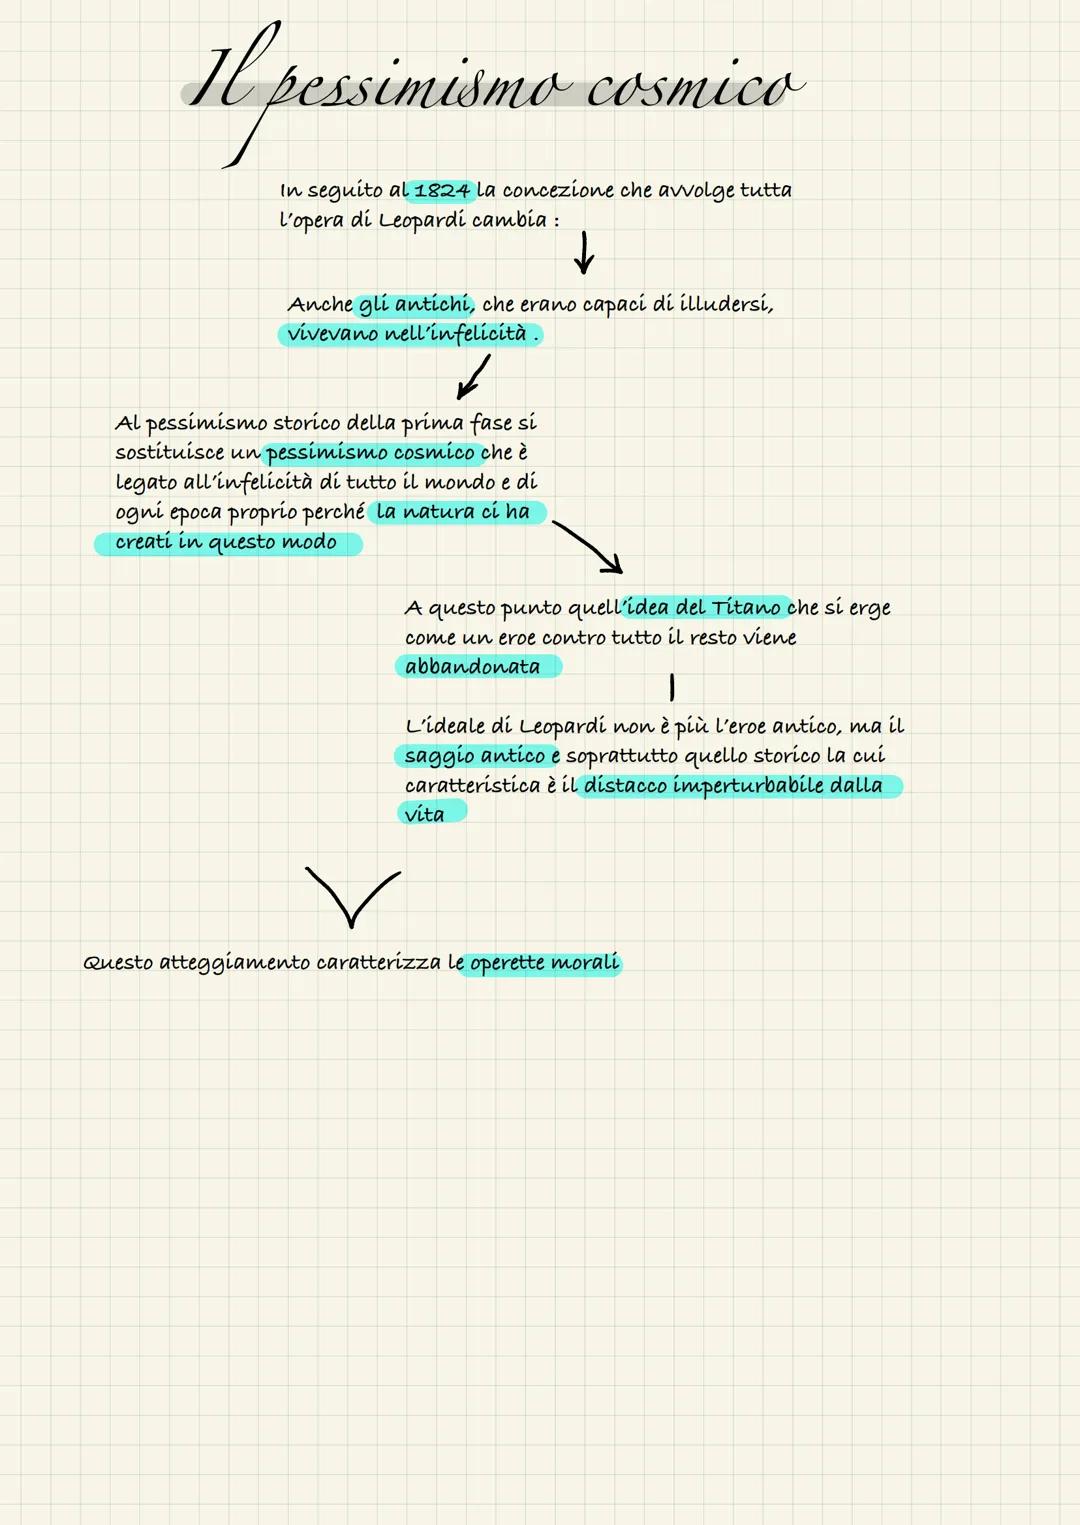 Il pessimismo cosmico
In seguito al 1824 la concezione che avvolge tutta
l'opera di Leopardi cambia :
Anche gli antichi, che erano capaci di illudersi,
vivevano nell'infelicità .
Al pessimismo storico della prima fase si
sostituisce un pessimismo cosmico che è
legato all'infelicità di tutto il mondo e di
ogni epoca proprio perché la natura ci ha
creati in questo modo
A questo punto quell'idea del Titano che si erge
come un eroe contro tutto il resto viene
abbandonata
L'ideale di Leopardi non è più l'eroe antico, ma il
saggio antico e soprattutto quello storico la cui
caratteristica è il distacco imperturbabile dalla
vita
Questo atteggiamento caratterizza le operette morali